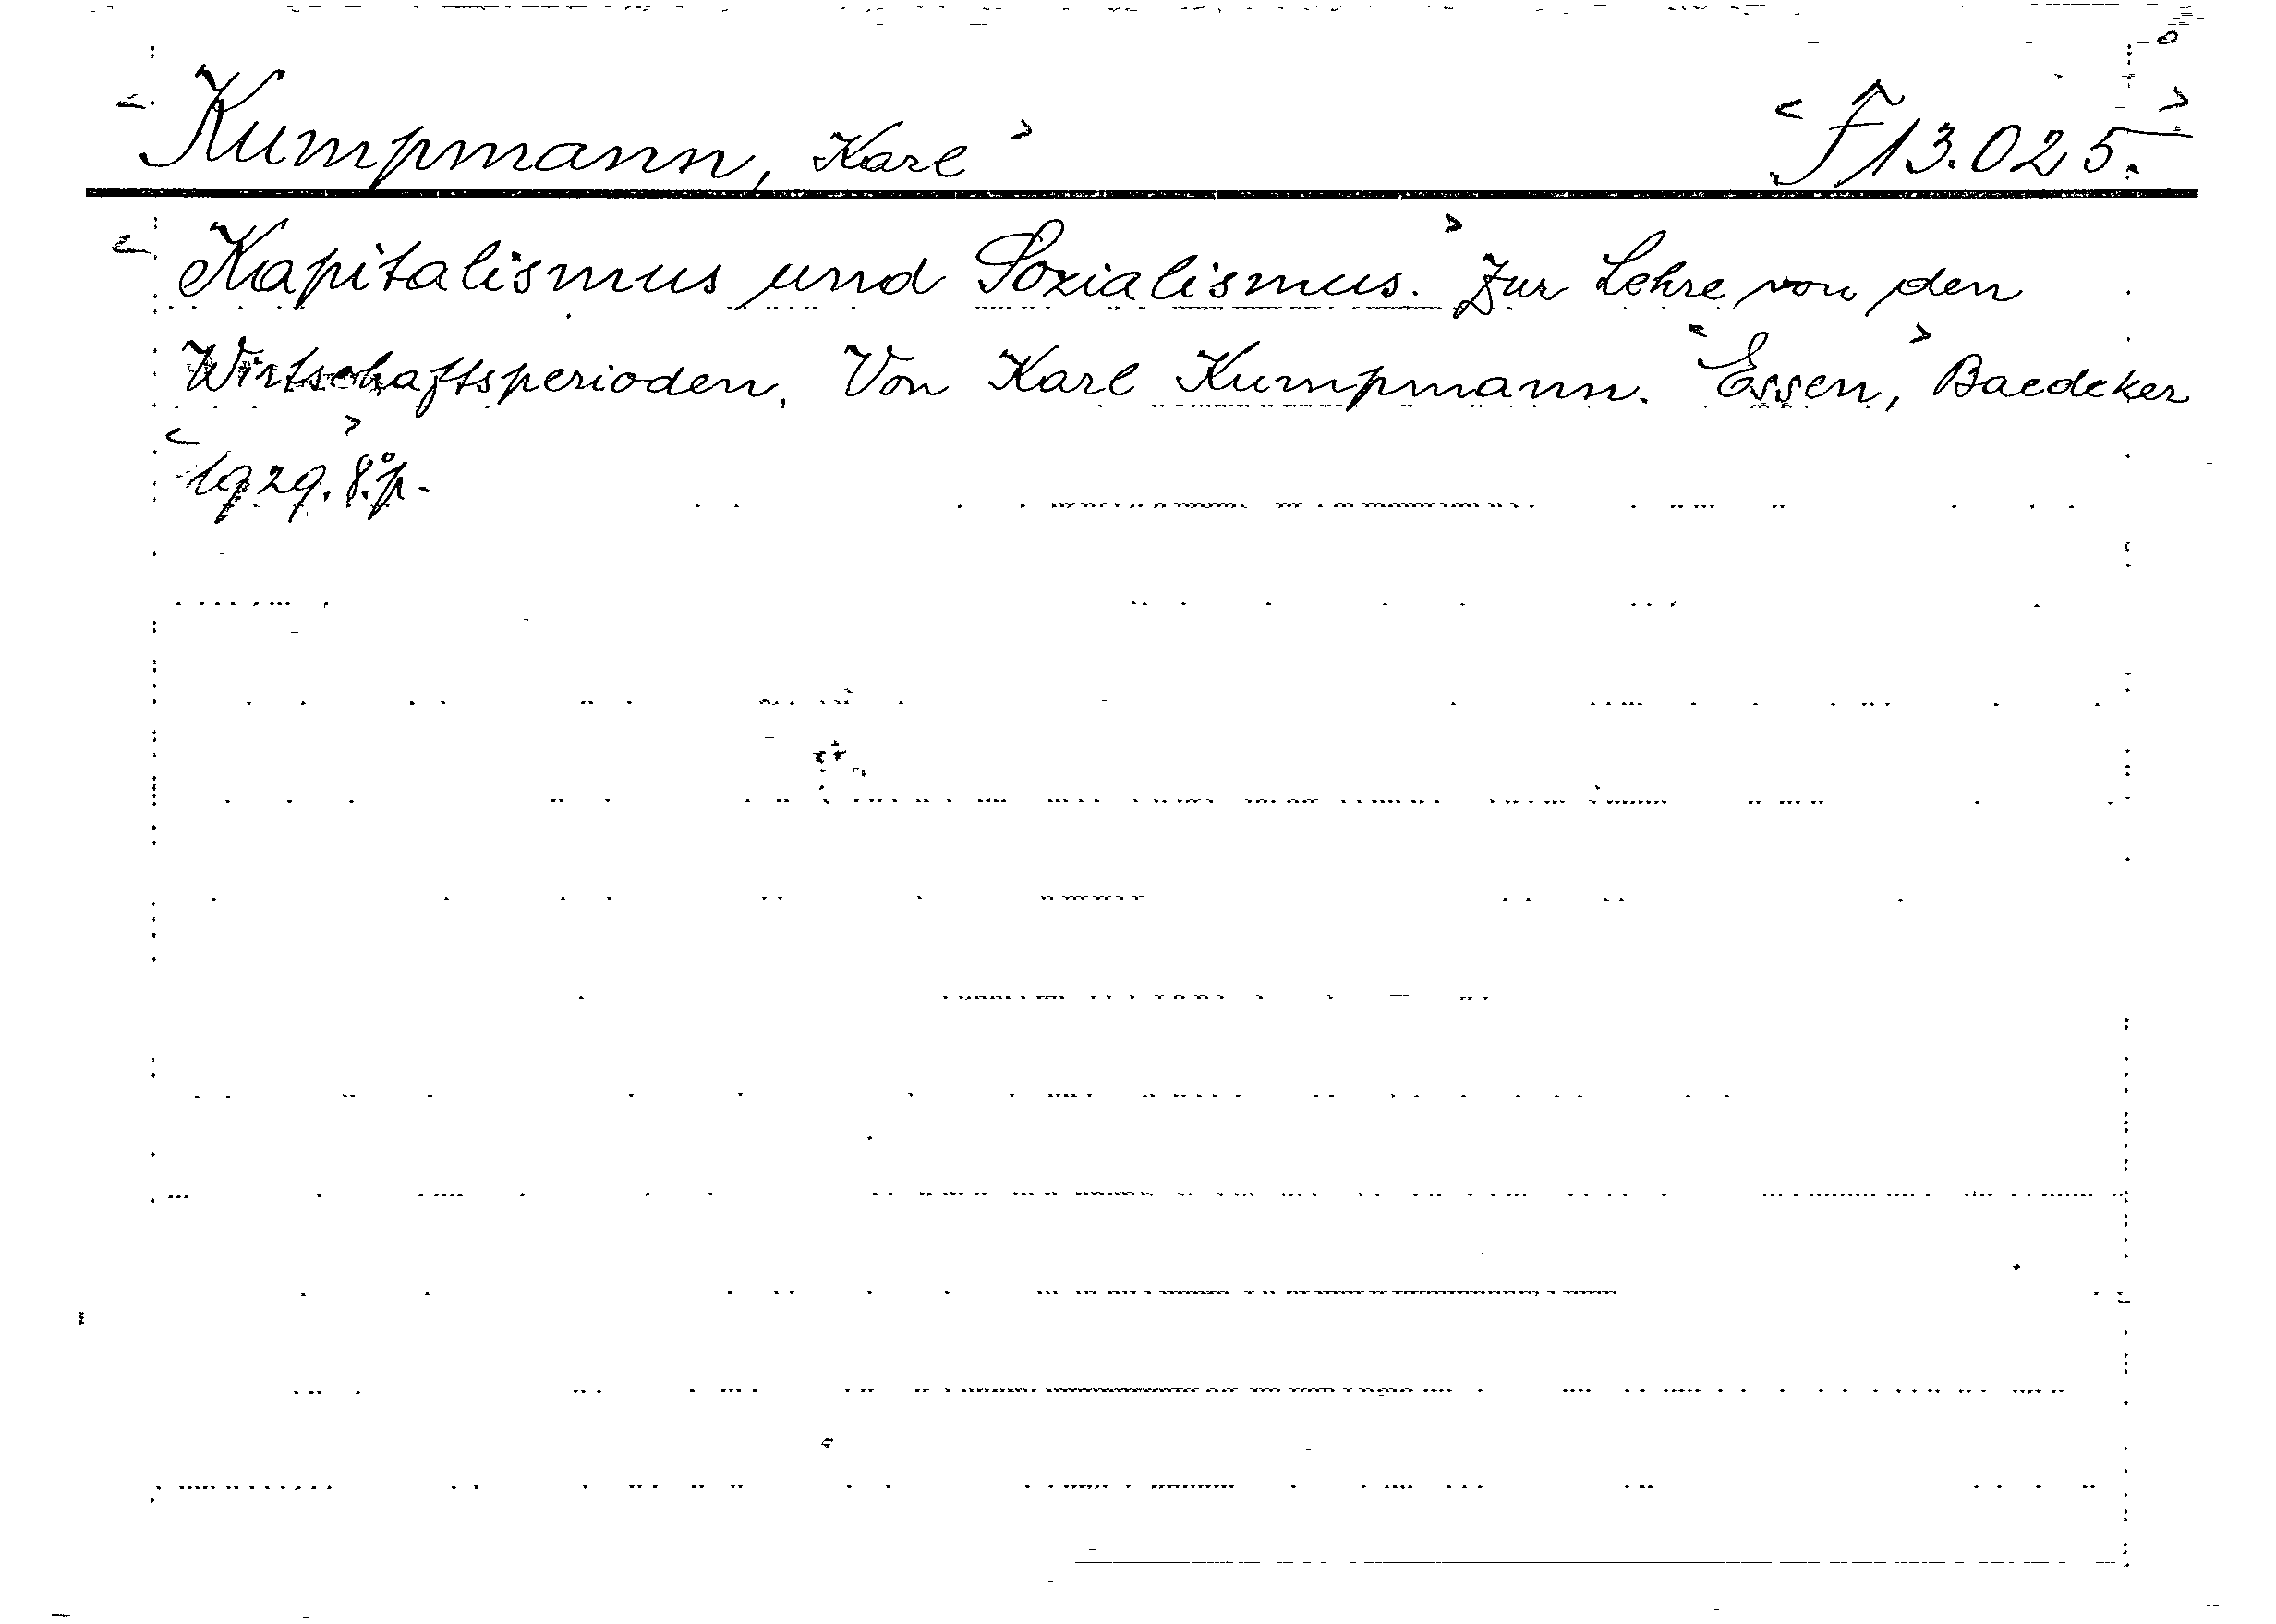 < Kumpmann, Karl > < F 13.025. >
< Kapitalismus und Sozialismus. > Zur Lehre von den
Wirtschaftsperioden. Von Karl Kumpmann. < Essen, > Baedeker
< 1929. > 8.° p.